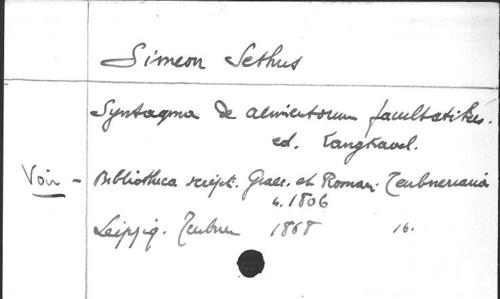 Simeon Sethus
Syntagma de alimentorum facultatibus.
ed. Langkavel.
Voir - Bibliotheca script. Graec. et Roman. Teubneriana
1806
Leipzig. Teubner 1868 16.